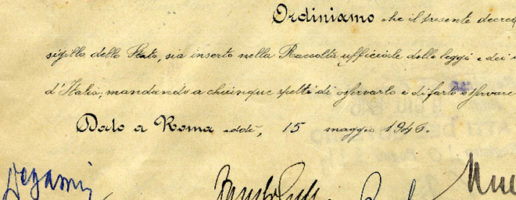 Ordiniamo che il presente decreto
sigillo dello Stato, sia inserto nella Raccolta ufficiale delle leggi e dei
d'Italia, mandando a chiunque spetti di osservarlo e di farlo osservare
Dato a Roma addì, 15 maggio 1946.